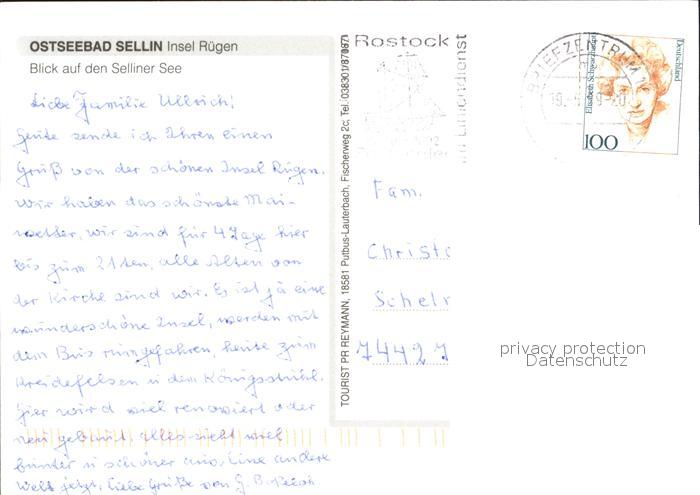 OSTSEEBAD SELLIN Insel Rügen
Blick auf den Selliner See
Liebe Familie Ullrich!
Heute sende ich Ihnen einen
Gruß von der schönen Insel Rügen.
Wir haben das schönste Mai-
wetter, wir sind für 4 Tage hier
bis zum 21ten, alle Alten von
der Kirche sind wir. Es ist ja eine
wunderschöne Insel, werden mit
dem Bus rumgefahren, heute zum
Kreidefelsen u dem Königsstuhl.
Hier wird viel renoviert oder
neu gebaut, alles sieht viel
bunter u schöner aus. Eine andere
Welt jetzt. Liebe Grüße von G. B.
TOURIST PR REYMANN, 18581 Putbus-Lauterbach, Fischerweg 2c, Tel. (038301/87087)
Rostock
im Liniendienst
BRIEFZENTRUM
19.
-20
Elisabeth Schwarzhaupt
Deutschland
100
Fam.
Christ
Scheln
74427
privacy protection
Datenschutz